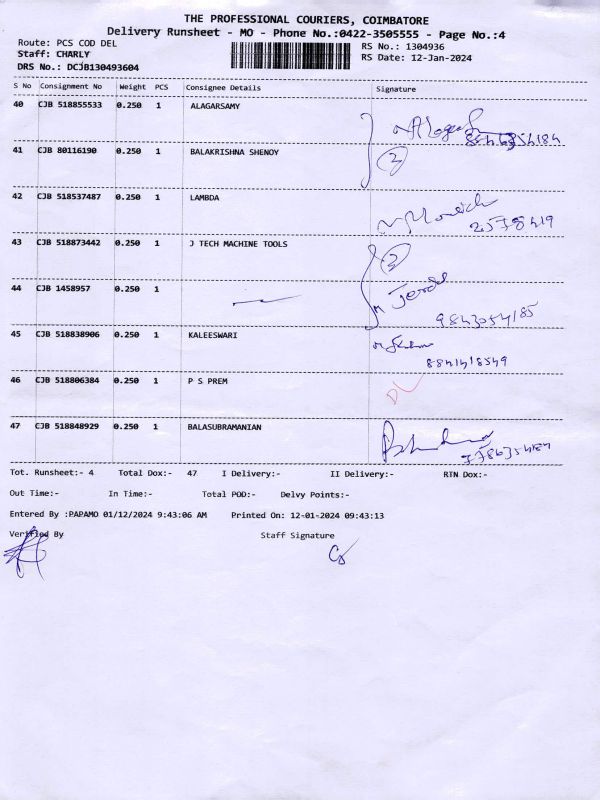 THE PROFESSIONAL COURIERS, COIMBATORE
Delivery Runsheet - MO - Phone No.:0422-3505555 - Page No.:4
Route: PCS COD DEL
Staff: CHARLY
DRS No.: DCJB130493604
RS No.: 1304936
RS Date: 12-Jan-2024
S No Consignment No Weight PCS Consignee Details Signature
40 CJB 518855533 0.250 1 ALAGARSAMY
41 CJB 80116190 0.250 1 BALAKRISHNA SHENOY
2
42 CJB 518537487 0.250 1 LAMBDA
2578419
43 CJB 518873442 0.250 1 J TECH MACHINE TOOLS
2
44 CJB 1458957 0.250 1
9843054185
45 CJB 518838906 0.250 1 KALEESWARI
46 CJB 518806384 0.250 1 P S PREM
DL
47 CJB 518848929 0.250 1 BALASUBRAMANIAN
Tot. Runsheet:- 4 Total Dox:- 47 I Delivery:- II Delivery:- RTN Dox:-
Out Time:- In Time:- Total POD:- Delvy Points:-
Entered By :PAPAMO 01/12/2024 9:43:06 AM Printed On: 12-01-2024 09:43:13
Verified By Staff Signature